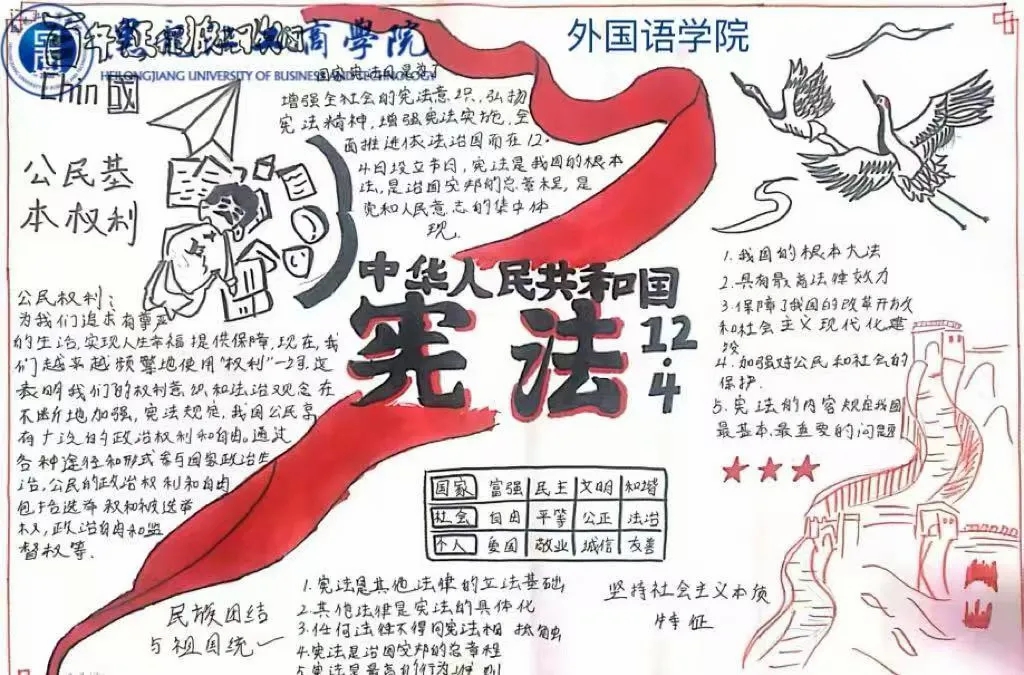 商學院
HEILONGJIANG UNIVERSITY OF BUSINESS AND TECHNOLOGY
外国语学院
Chin國
公民基
本权利
增强全社会的宪法意识,弘扬
宪法精神,增强宪法实施,全
面推进依法治国而在12.
4日设立节日,宪法是我国的根本
法,是治国安邦的总章程,是
党和人民意志的集中体
现.
中华人民共和国
宪法
12.4
公民权利:
为我们追求有尊严
的生活,实现人生幸福提供保障,现在,我
们越来越频繁地使用"权利"一词,这
表明我们的权利意识和法治观念在
不断地加强,宪法规定,我国公民享
有广泛的政治权利和自由。通过
各种途径和形式参与国家政治生
活,公民的政治权利和自由
包括选举权和被选举
权,政治自由和监
督权等.
1.我国的根本大法
2.具有最高法律效力
3.保障了我国的改革开放
和社会主义现代化建
设
4.加强对公民和社会的
保护.
5.宪法的内容规定我国
最基本,最重要的问题
国家 富强 民主 文明 和谐
社会 自由 平等 公正 法治
个人 爱国 敬业 诚信 友善
民族团结
与祖国统一
1.宪法是其他法律的立法基础
2.其他法律是宪法的具体化
3.任何法律不得同宪法相抵触
4.宪法是治国安邦的总章程
5.宪法是最高的行为准则
坚持社会主义本质
特征